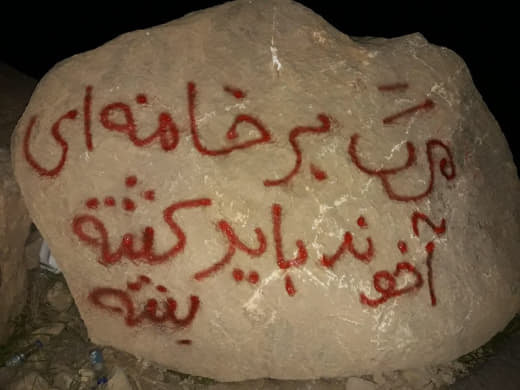 مرگ بر خامنه‌ای
آخوند باید کشته
بشه